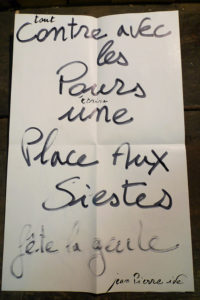 tout
Contre avec
les
Pours
écrire
une
Place Aux
Siestes
fête la
jean Pierre